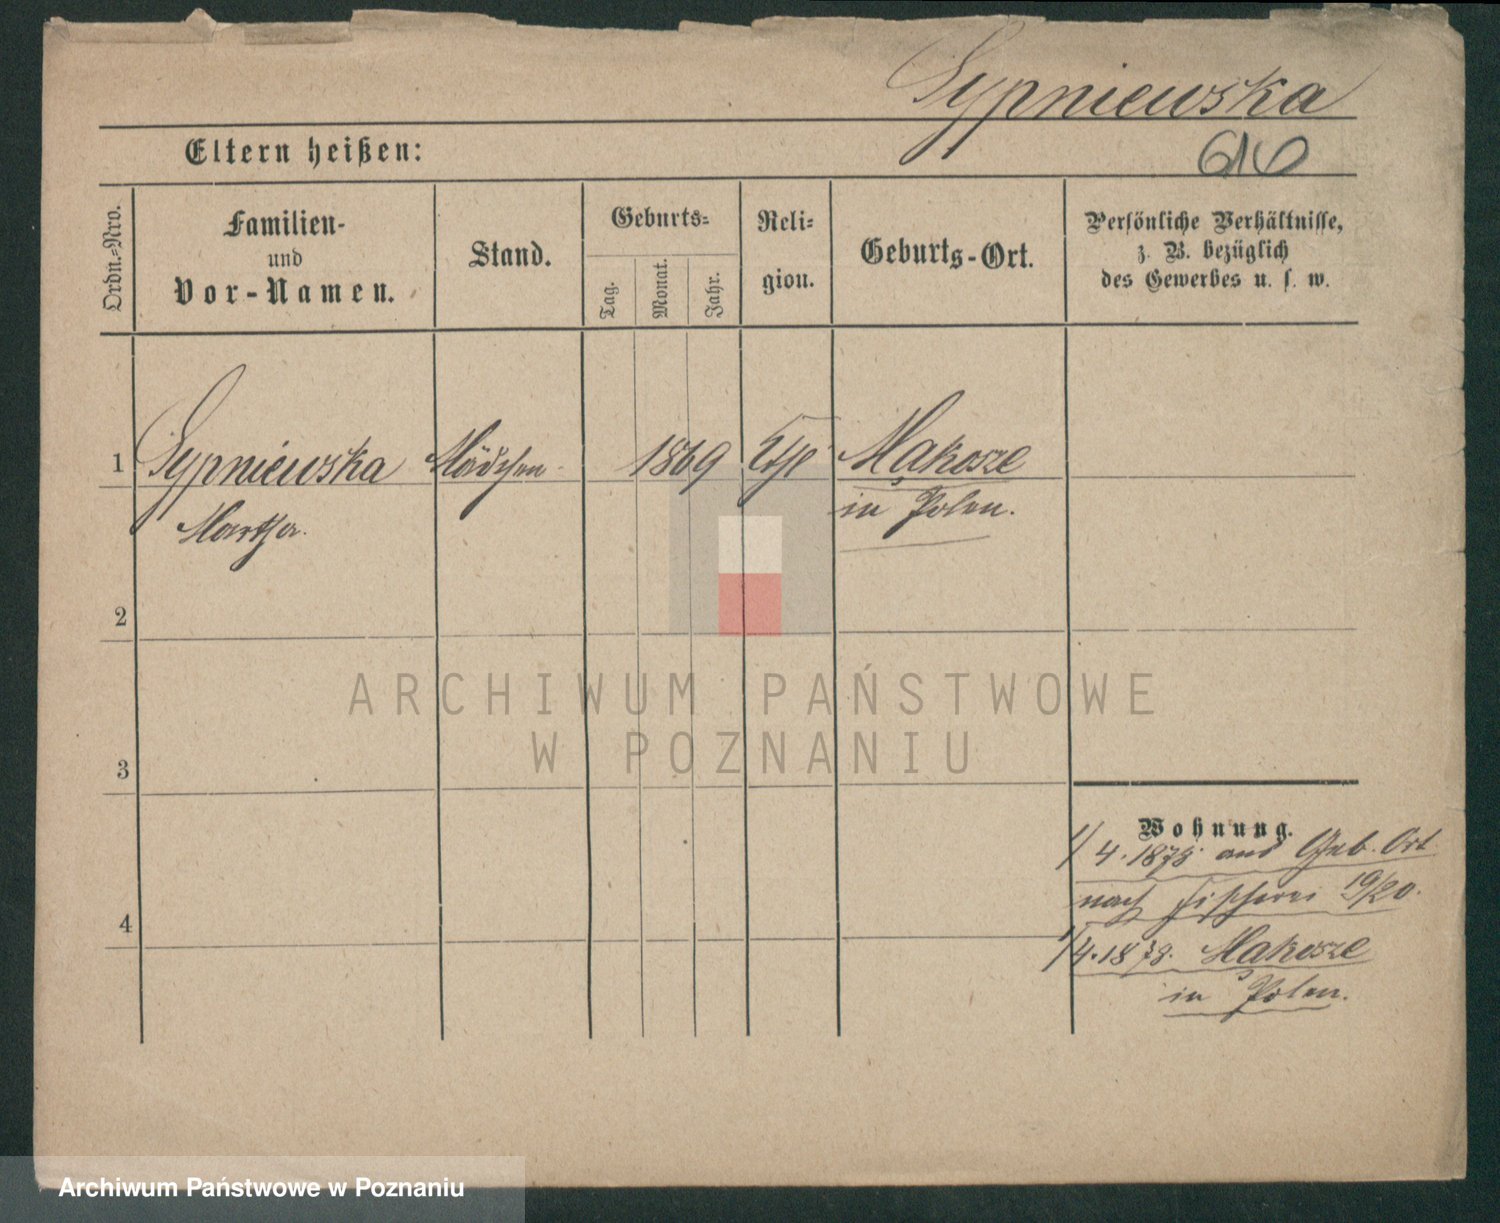 Sypniewska
616
Eltern heißen:
Ordn.-Nro.
Familien-
und
Vor-Namen.
Stand.
Geburts-
Tag.
Monat.
Jahr.
Reli-
gion.
Geburts-Ort.
Persönliche Verhältnisse,
z. B. bezüglich
des Gewerbes u. s. w.
1 Sypniewska Mädchen 1869 Kth Mąkosze
Martha. in Polen.
2
ARCHIWUM PAŃSTWOWE
W POZNANIU
3
Wohnung.
1/4. 1878 aus Geb. Ort
nach Fischerei 19/20.
4
1/4. 1879. Mąkosze
in Polen.
Archiwum Państwowe w Poznaniu